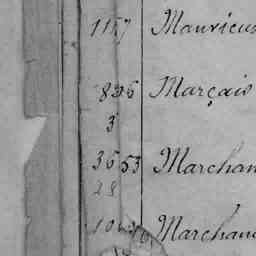 1157 Mauricus
835 Marçais
3
3653 Marchan
28
Marchand